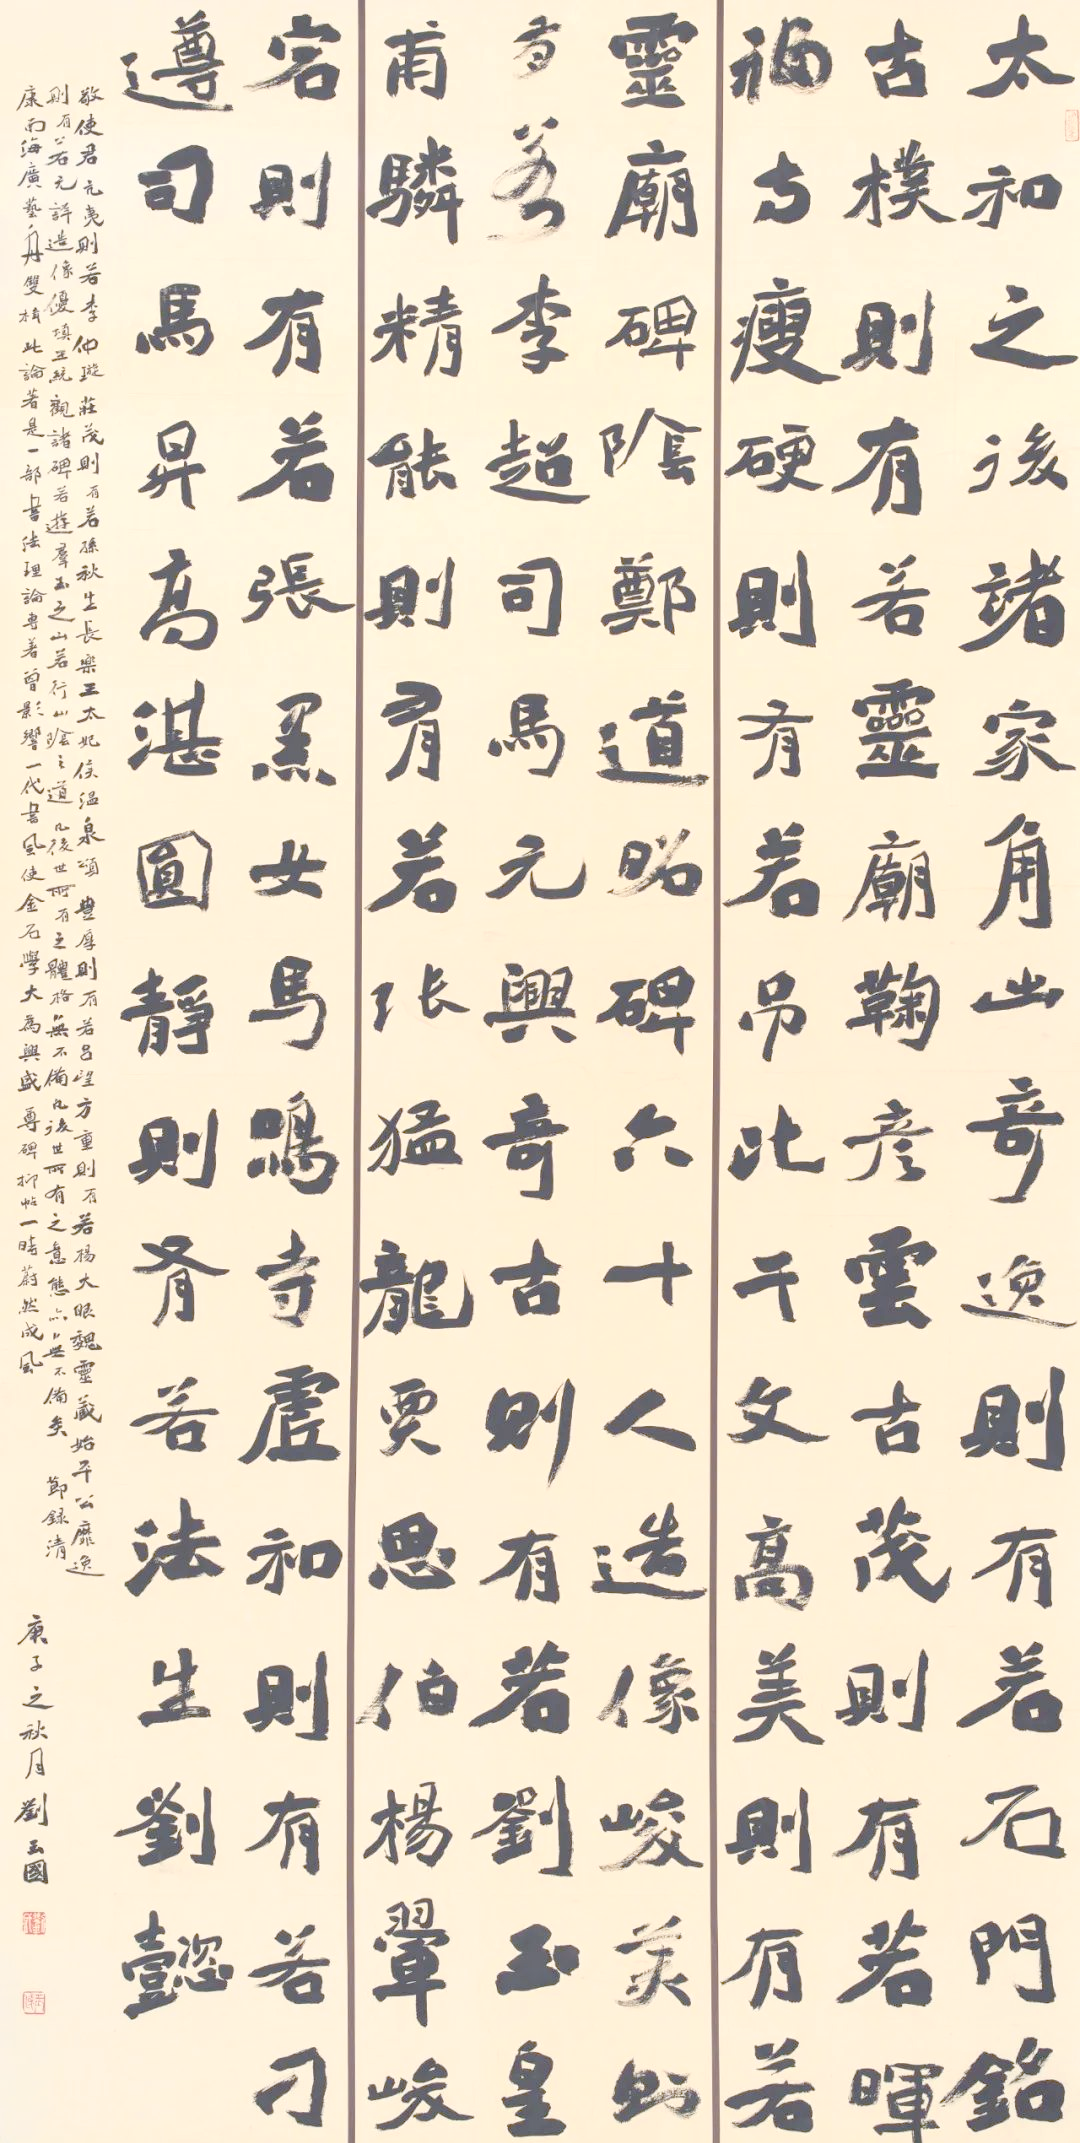 太和之後諸家角出奇逸則有若石門銘
古樸則有若靈廟鞠彥雲古茂則有若暉
福寺瘦硬則有若吊比干文高美則有若
靈廟碑陰鄭道昭碑六十人造像峻美則
有若李超司馬元興奇古則有若劉玉皇
甫驎精能則有若張猛龍賈思伯楊翬峻
宕則有若張黑女馬鳴寺虛和則有若刁
遵司馬昇高湛圓靜則有若法生劉懿
敬使君元夷則若李仲璇莊茂則有若孫秋生長樂王太妃侯溫泉頌豐厚則有若呂望方重則有若楊大眼魏靈藏始平公靡逸
則有若元詳造像優填王統觀諸碑若遊羣玉之山若行山陰之道凡後世所有之體格無不備凡後世所有之意態亦無不備矣 節錄清
康南海廣藝舟雙楫此論著是一部書法理論專著曾影響一代書風使金石學大為興盛尊碑抑帖一時蔚然成風 庚子之秋月劉玉國